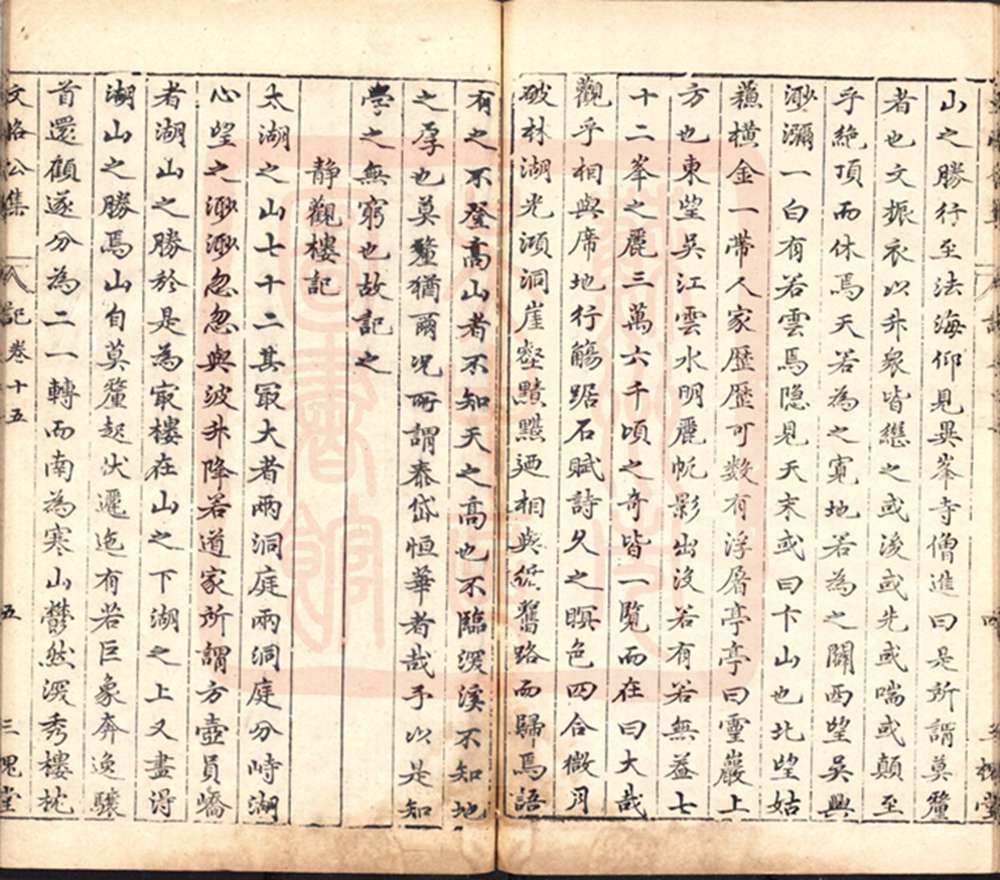 山之勝行至法海仰見異峯寺僧進曰是所謂莫釐
者也文振衣以升衆皆繼之或後或先或喘或顛至
乎絶頂而休焉天若為之寛地若為之闢西望吳興
渺瀰一白有若雲焉隠見天末或曰卞山也北望姑
蘓橫金一帶人家歴歴可数有浮屠亭亭曰靈巖上
方也東望吳江雲水明麗帆影出没若有若無葢七
十二峯之麗三萬六千頃之奇皆一覧而在曰大哉
觀乎相與席地行觴踞石賦詩久之暝色四合微月
破林湖光澒洞崖壑黯䵝廼相與循舊路而歸焉語
有之不登高山者不知天之高也不臨深溪不知地
之厚也莫釐猶爾况所謂泰岱恒華者哉予以是知
學之無窮也故記之
靜觀樓記
太湖之山七十二其最大者兩洞庭兩洞庭分峙湖
心望之渺渺忽忽與波升降若道家所謂方壺員嶠
者湖山之勝於是為最樓在山之下湖之上又盡得
湖山之勝焉山自莫釐起伏邐迤有若巨象奔逸驤
首還顧遂分為二一轉而南為寒山鬱然深秀樓枕
文恪公集 記卷十五 五 三槐堂